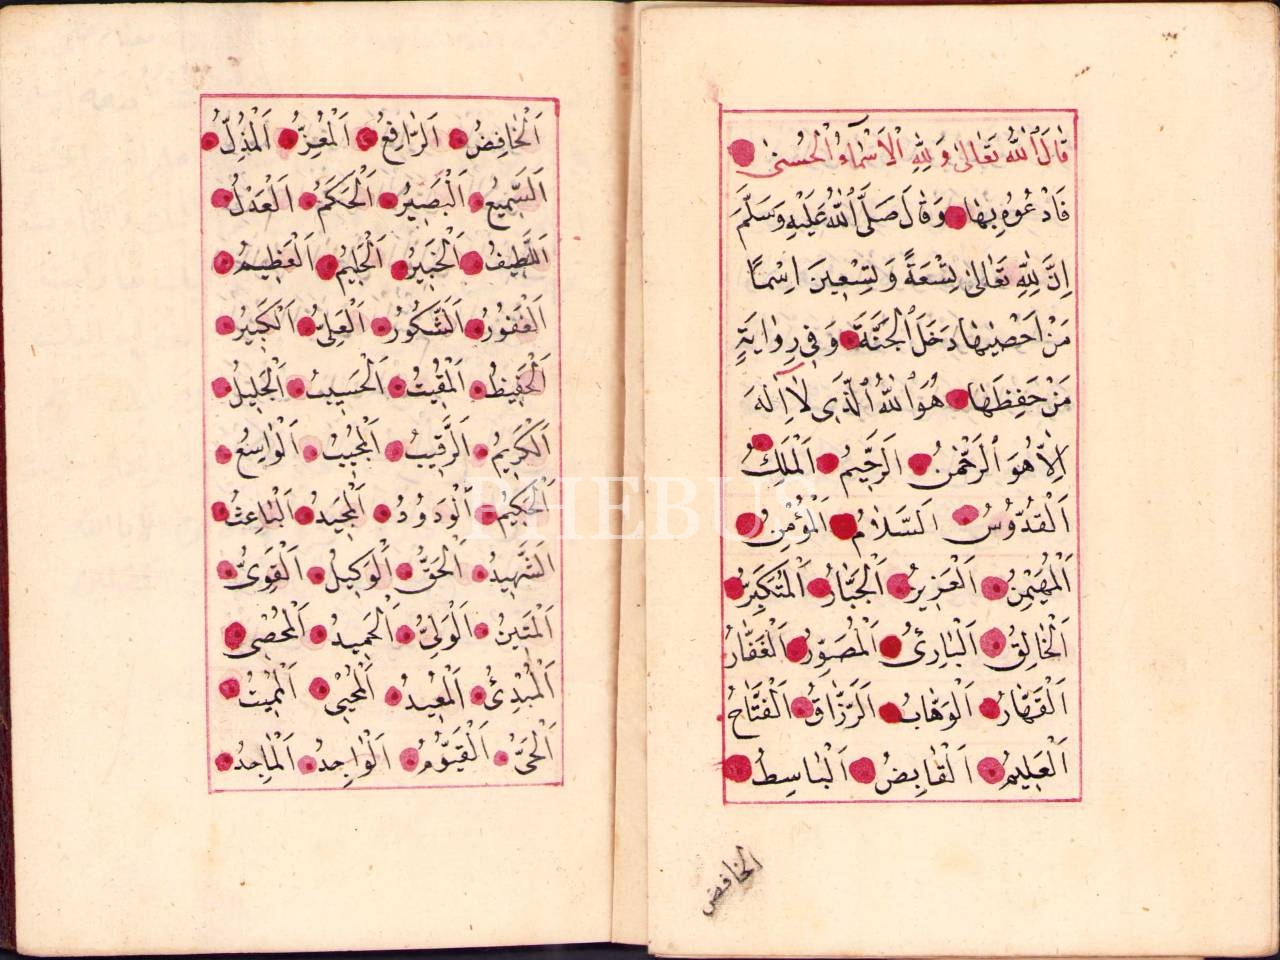 قَالَ اللّٰهُ تَعَالٰى وَلِلّٰهِ الْاَسْمَاءُ الْحُسْنٰى
فَادْعُوهُ بِهَا وَقَالَ صَلَّى اللّٰهُ عَلَيْهِ وَسَلَّمَ
اِنَّ لِلّٰهِ تَعَالٰى تِسْعَةً وَتِسْعِينَ اِسْمًا
مَنْ اَحْصٰيهَا دَخَلَ الْجَنَّةَ وَفِى رِوَايَةٍ
مَنْ حَفِظَهَا هُوَ اللّٰهُ الَّذِى لَا اِلٰهَ
اِلَّا هُوَ الرَّحْمٰنُ اَلرَّحِيمُ اَلْمَلِكُ
اَلْقُدُّوسُ اَلسَّلَامُ اَلْمُؤْمِنُ
اَلْمُهَيْمِنُ اَلْعَزِيزُ اَلْجَبَّارُ اَلْمُتَكَبِّرُ
اَلْخَالِقُ اَلْبَارِئُ اَلْمُصَوِّرُ اَلْغَفَّارُ
اَلْقَهَّارُ اَلْوَهَّابُ اَلرَّزَّاقُ اَلْفَتَّاحُ
اَلْعَلِيمُ اَلْقَابِضُ اَلْبَاسِطُ
الخافض
اَلْخَافِضُ اَلرَّافِعُ اَلْمُعِزُّ اَلْمُذِلُّ
اَلسَّمِيعُ اَلْبَصِيرُ اَلْحَكَمُ اَلْعَدْلُ
اَللَّطِيفُ اَلْخَبِيرُ اَلْحَلِيمُ اَلْعَظِيمُ
اَلْغَفُورُ اَلشَّكُورُ اَلْعَلِىُّ اَلْكَبِيرُ
اَلْحَفِيظُ اَلْمُقِيتُ اَلْحَسِيبُ اَلْجَلِيلُ
اَلْكَرِيمُ اَلرَّقِيبُ اَلْمُجِيبُ اَلْوَاسِعُ
اَلْحَكِيمُ اَلْوَدُودُ اَلْمَجِيدُ اَلْبَاعِثُ
اَلشَّهِيدُ اَلْحَقُّ اَلْوَكِيلُ اَلْقَوِىُّ
اَلْمَتِينُ اَلْوَلِىُّ اَلْحَمِيدُ اَلْمُحْصِى
اَلْمُبْدِئُ اَلْمُعِيدُ اَلْمُحْيِى اَلْمُمِيتُ
اَلْحَىُّ اَلْقَيُّومُ اَلْوَاجِدُ اَلْمَاجِدُ
PHEBUS